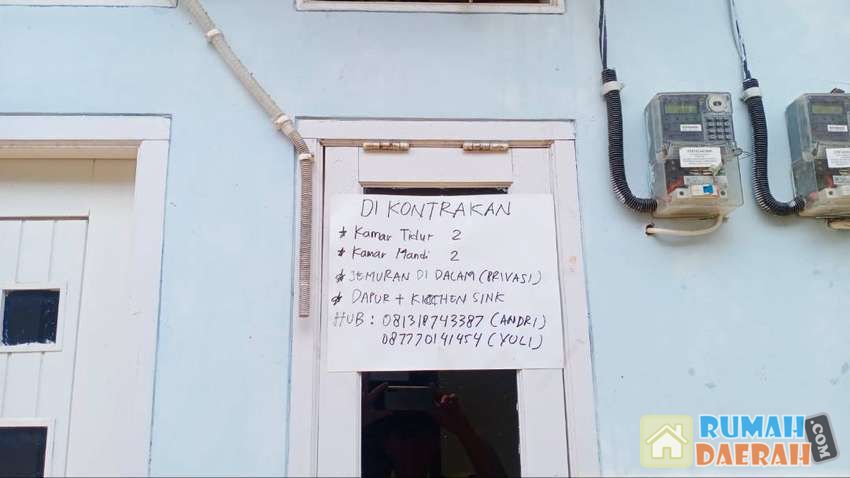 DI KONTRAKAN
* Kamar Tidur 2
* Kamar Mandi 2
* JEMURAN DI DALAM (PRIVASI)
* DAPUR + KITCHEN SINK
HUB : 081318743387 (ANDRI)
087770141454 (YULI)
RUMAH
DAERAH.COM